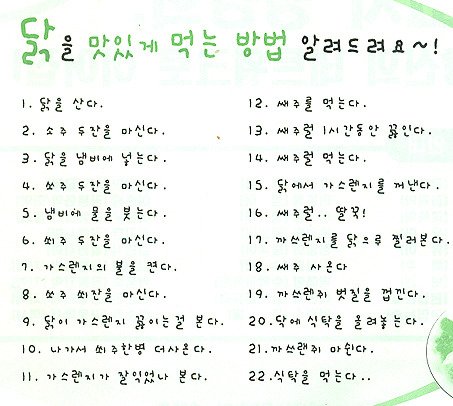 닭을 맛있게 먹는 방법 알려드려요~!
1. 닭을 산다.
2. 소주 두잔을 마신다.
3. 닭을 냄비에 넣는다.
4. 쏘주 두잔을 마신다.
5. 냄비에 물을 붓는다.
6. 쐬주 두잔을 마신다.
7. 가스렌지의 불을 켠다.
8. 쏘주 쐬잔을 마신다.
9. 닭이 가스렌지 끓이는걸 본다.
10. 나가서 쐬주한병 더사온다.
11. 가스렌지가 잘익었나 본다.
12. 쌔주를 먹는다.
13. 쌔주럴 1시간동안 끓인다.
14. 쌔주럴 먹는다.
15. 닭에서 가스렌지를 꺼낸다.
16. 쌔주럴.. 딸꾹!
17. 까쓰렌지를 닭으루 찔러본다.
18. 쌔주 사온다
19. 까쓰렌쥐 벗질을 껍긴다.
20. 닥에 식탁을 올려놓는다.
21. 까쓰랜쥐 마쉰다.
22. 식탁을 먹는다..